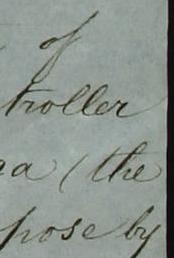 of
troller
a (the
pose by